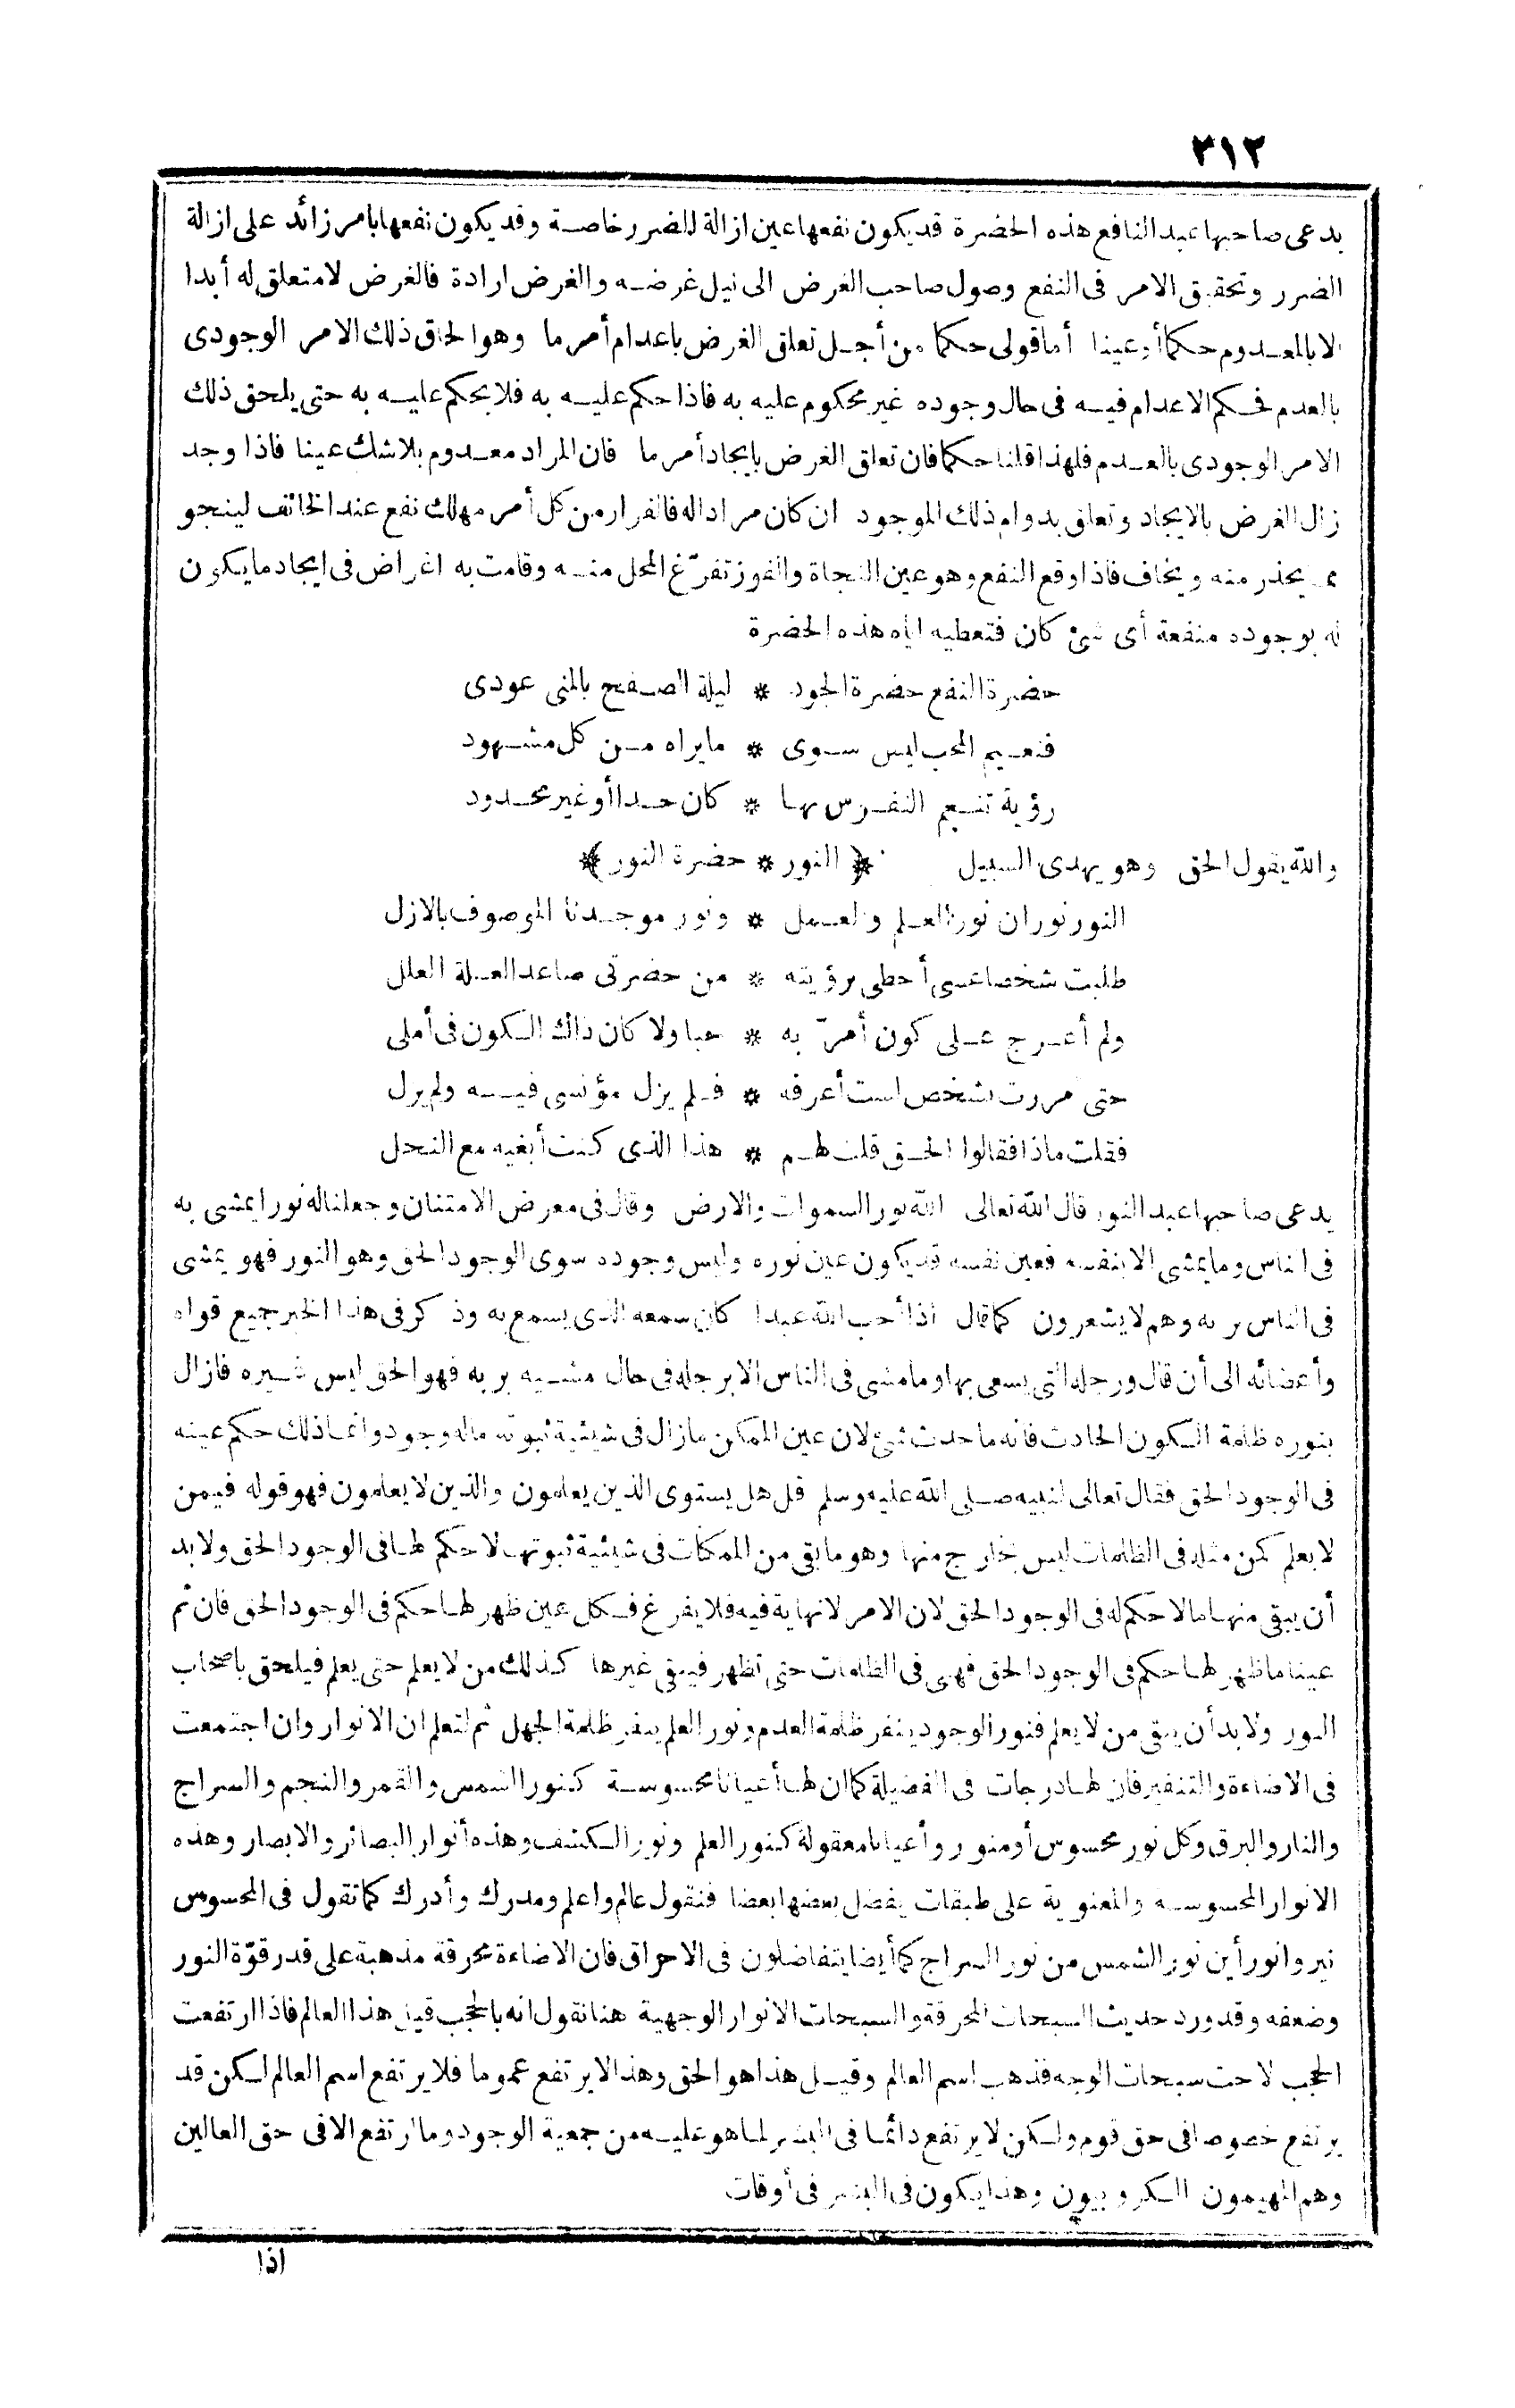 ٣١٢
يدعى صاحبها عبد النافع هذه الحضرة قد يكون نفعها عين ازالة الضرر خاصة وقد يكون نفعها بامر زائد على ازالة
الضرر وتحقيق الامر فى النفع وصول صاحب الغرض الى نيل غرضه والغرض ارادة فالغرض لا متعلق له أبدا
الا بالمعدوم حكما أو عينا أما قولى حكما من أجل تعلق الغرض باعدام أمر ما وهو الحاق ذلك الامر الوجودى
بالعدم فحكم الاعدام فيه فى حال وجوده غير محكوم عليه به فاذا حكم عليه به فلا يحكم عليه به حتى يلحق ذلك
الامر الوجودى بالعدم فلهذا قلنا حكما فان تعلق الغرض بايجاد أمر ما فان المراد معدوم بلا شك عينا فاذا وجد
زال الغرض بالايجاد وتعلق بدوام ذلك الموجود ان كان مراداله فالفرار من كل أمر مهلك نفع عند الخائف لينجو
مما يحذر منه ويخاف فاذا وقع النفع وهو عين النجاة والفوز تفرّغ المحل منه وقامت به اغراض فى ايجاد ما يكون
له بوجوده منفعة أى شئ كان فتعطيه اياه هذه الحضرة
حضرة النفع حضرة الجود * ليلة الصفح بالمنى عودى
فنعيم المحب ليس سوى * ما يراه من كل مشهود
رؤية تنعم النفوس بها * كان حدا أو غير محدود
والله يقول الحق وهو يهدى السبيل ﴿* النور * حضرة النور *﴾
النور نوران نور العلم والعمل * ونور موجدنا الموصوف بالازل
طلبت شخصا عسى أحظى برؤيته * من حضرتى صاعد العلة العلل
ولم أعرج على كون أمرّ به * حبا ولا كان ذاك الكون فى أملى
حتى مررت بشخص لست أعرفه * فلم يزل مؤنسى فيه ولم يزل
فقلت ماذا فقالوا الحق قلت لهم * هذا الذى كنت أبغيه مع النحل
يدعى صاحبها عبد النور قال الله تعالى الله نور السموات والارض وقال فى معرض الامتنان وجعلنا له نورا يمشى به
فى الناس وما يمشى الا بنفسه فعين نفسه قد يكون عين نوره وليس وجوده سوى الوجود الحق وهو النور فهو يمشى
فى الناس بربه وهم لا يشعرون كما قال اذا أحب الله عبدا كان سمعه الذى يسمع به وذكر فى هذا الخبر جميع قواه
وأعضائه الى أن قال ورجله التى يسعى بها وما مشى فى الناس الا برجله فى حال مشيه بربه فهو الحق ليس غيره فازال
بنوره ظلمة الكون الحادث فانه ما حدث شئ لان عين الممكن ما زال فى شيئية ثبوته ماله وجود وانما ذلك حكم عينه
فى الوجود الحق فقال تعالى لنبيه صلى الله عليه وسلم قل هل يستوى الذين يعلمون والذين لا يعلمون فهو قوله فيمن
لا يعلم كمن مثله فى الظلمات ليس بخارج منها وهو ما بقى من الممكنات فى شيئية ثبوتها لا حكم لها فى الوجود الحق ولا بد
أن يبقى منها ما لا حكم له فى الوجود الحق لان الامر لا نهاية فيه فلا يفرغ فكل عين ظهر لها حكم فى الوجود الحق فان ثم
عينا ما ظهر لها حكم فى الوجود الحق فهى فى الظلمات حتى تظهر فيبقى غيرها كذلك من لا يعلم حتى يعلم فيلحق باصحاب
النور ولا بد أن يبقى من لا يعلم فنور الوجود ينفر ظلمة العدم ونور العلم ينفر ظلمة الجهل ثم لتعلم ان الانوار وان اجتمعت
فى الاضاءة والتنفير فان لها درجات فى الفضيلة كما ان لها أعيانا محسوسة كنور الشمس والقمر والنجم والسراج
والنار والبرق وكل نور محسوس أو منور وأعيانا معقولة كنور العلم ونور الكشف وهذه أنوار البصائر والابصار وهذه
الانوار المحسوسه والمعنوية على طبقات يفضل بعضها بعضا فنقول عالم واعلم ومدرك وأدرك كما تقول فى المحسوس
نير وانور أين نور الشمس من نور السراج كما أيضا يتفاضلون فى الاحراق فان الاضاءة محرقة مذهبة على قدر قوّة النور
وضعفه وقد ورد حديث السبحات المحرقة والسبحات الانوار الوجهية هنا نقول انه بالحجب قيل هذا العالم فاذا ارتفعت
الحجب لاحت سبحات الوجه فذهب اسم العالم وقيل هذا هو الحق وهذا لا يرتفع عموما فلا يرتفع اسم العالم لكن قد
يرتفع خصوصا فى حق قوم ولكن لا يرتفع دائما فى البشر لما هو عليه من جمعية الوجود وما ارتفع الا فى حق العالين
وهم المهيمون الكروبيون وهذا يكون فى البشر فى أوقات
اذا